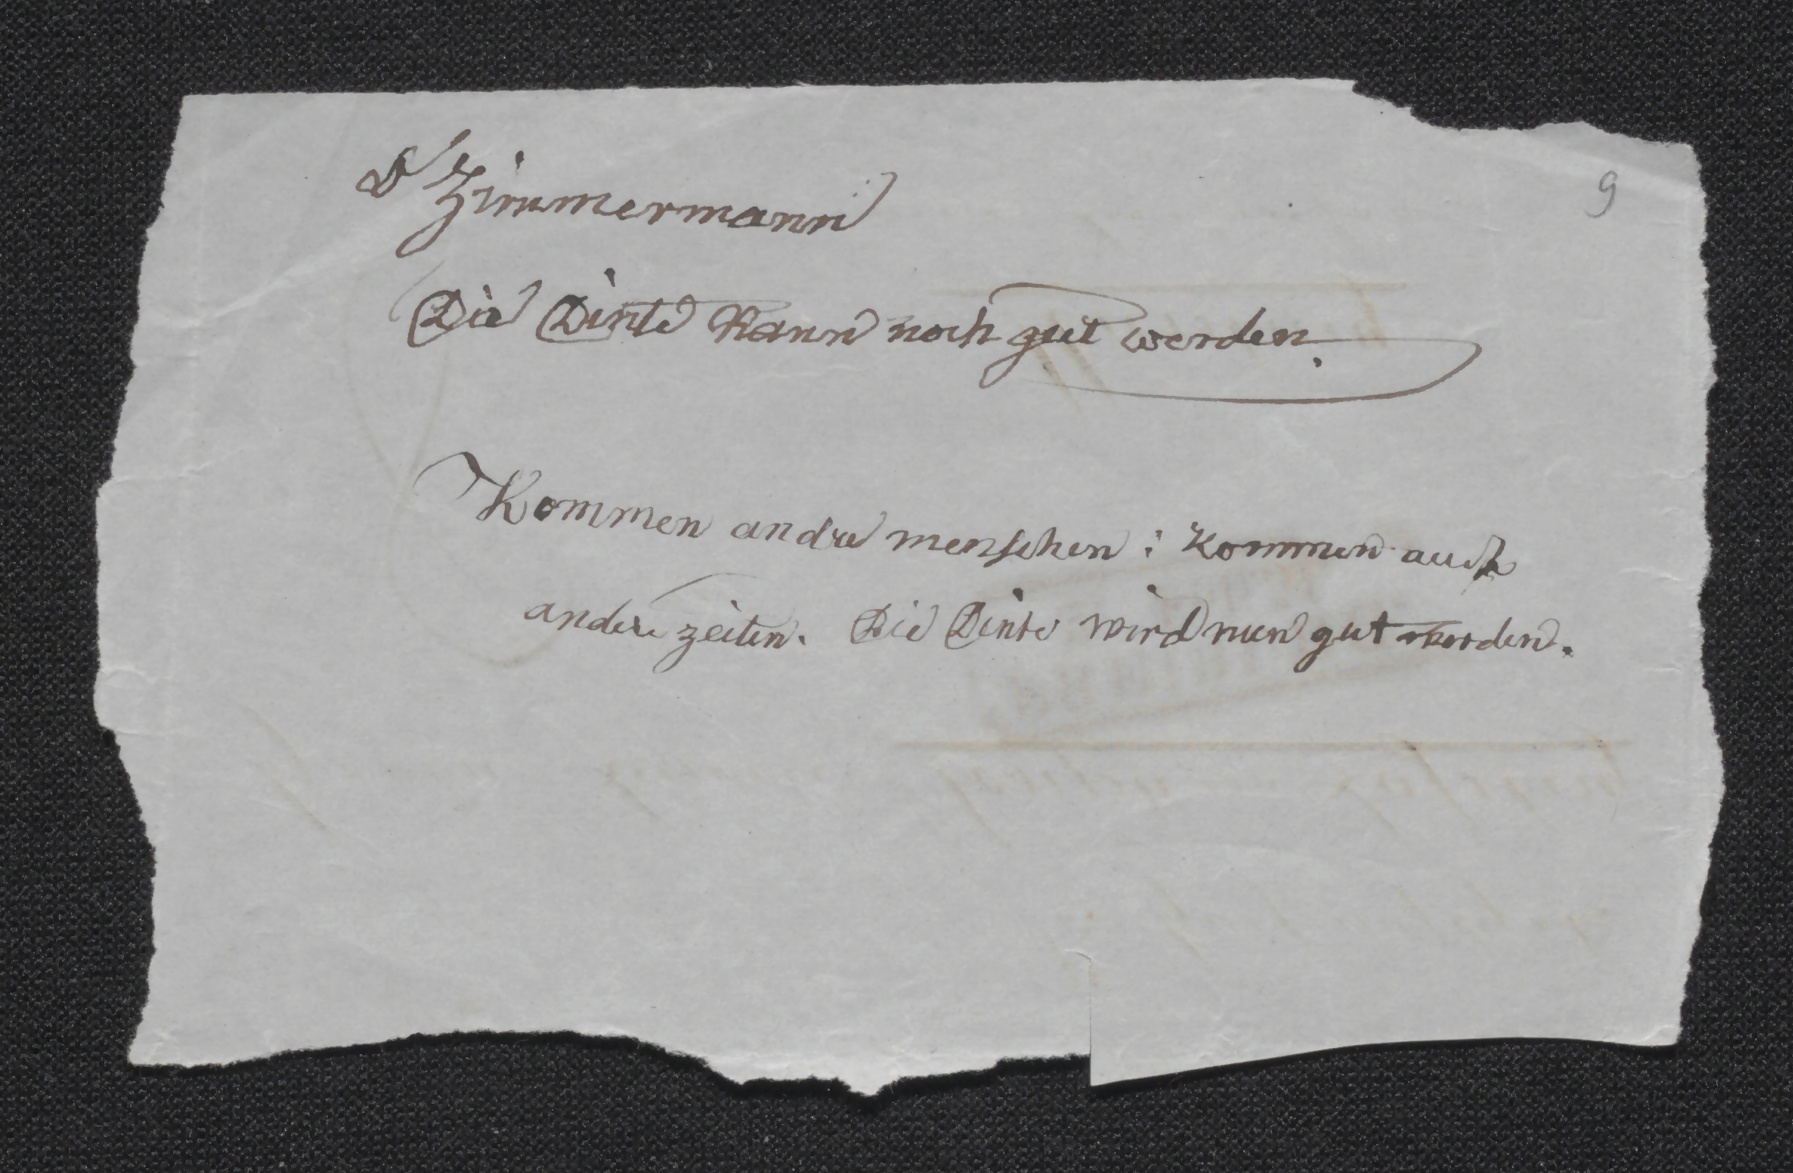 D Zimmermann
9
Die Dinte kann noch gut werden.
Kommen andre menschen; kommen auch
andere zeiten. Die Dinte wird nun gut werden.